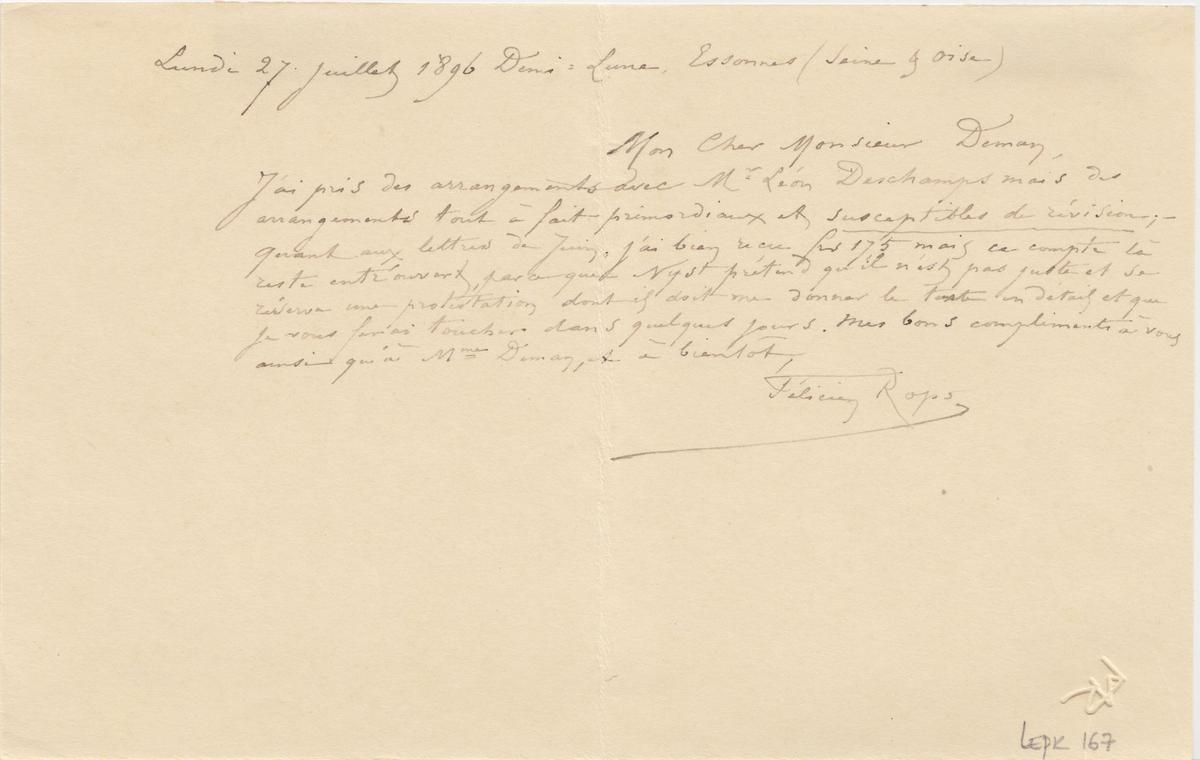 Lundi 27. Juillet 1896 Demi=Lune, Essonnes (Seine & Oise)
Mon Cher Monsieur Deman,
J'ai pris des arrangements avec Mr Léon Deschamps mais des
arrangements tout à fait primordiaux et susceptibles de révision;–
quant aux lettres de Juin, j'ai bien recu frs 175 mais ce compte là
reste entr'ouvert, parce que Nyst prétend qu'il n'est pas juste et se
réserve une protestation dont il doit me donner le texte en détail et que
je vous ferai toucher dans quelques jours. Mes bons compliments à vous
ainsi qu'à Mme Deman, et à bientôt,
Félicien Rops
LEpk 167